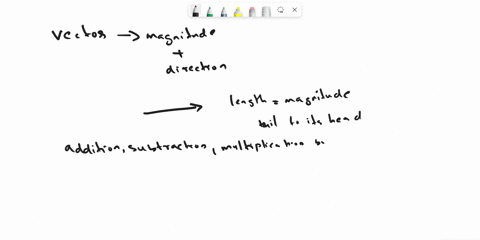 vector → magnitude
+
direction
length = magnitude
tail to its head
addition, subtraction, multiplication